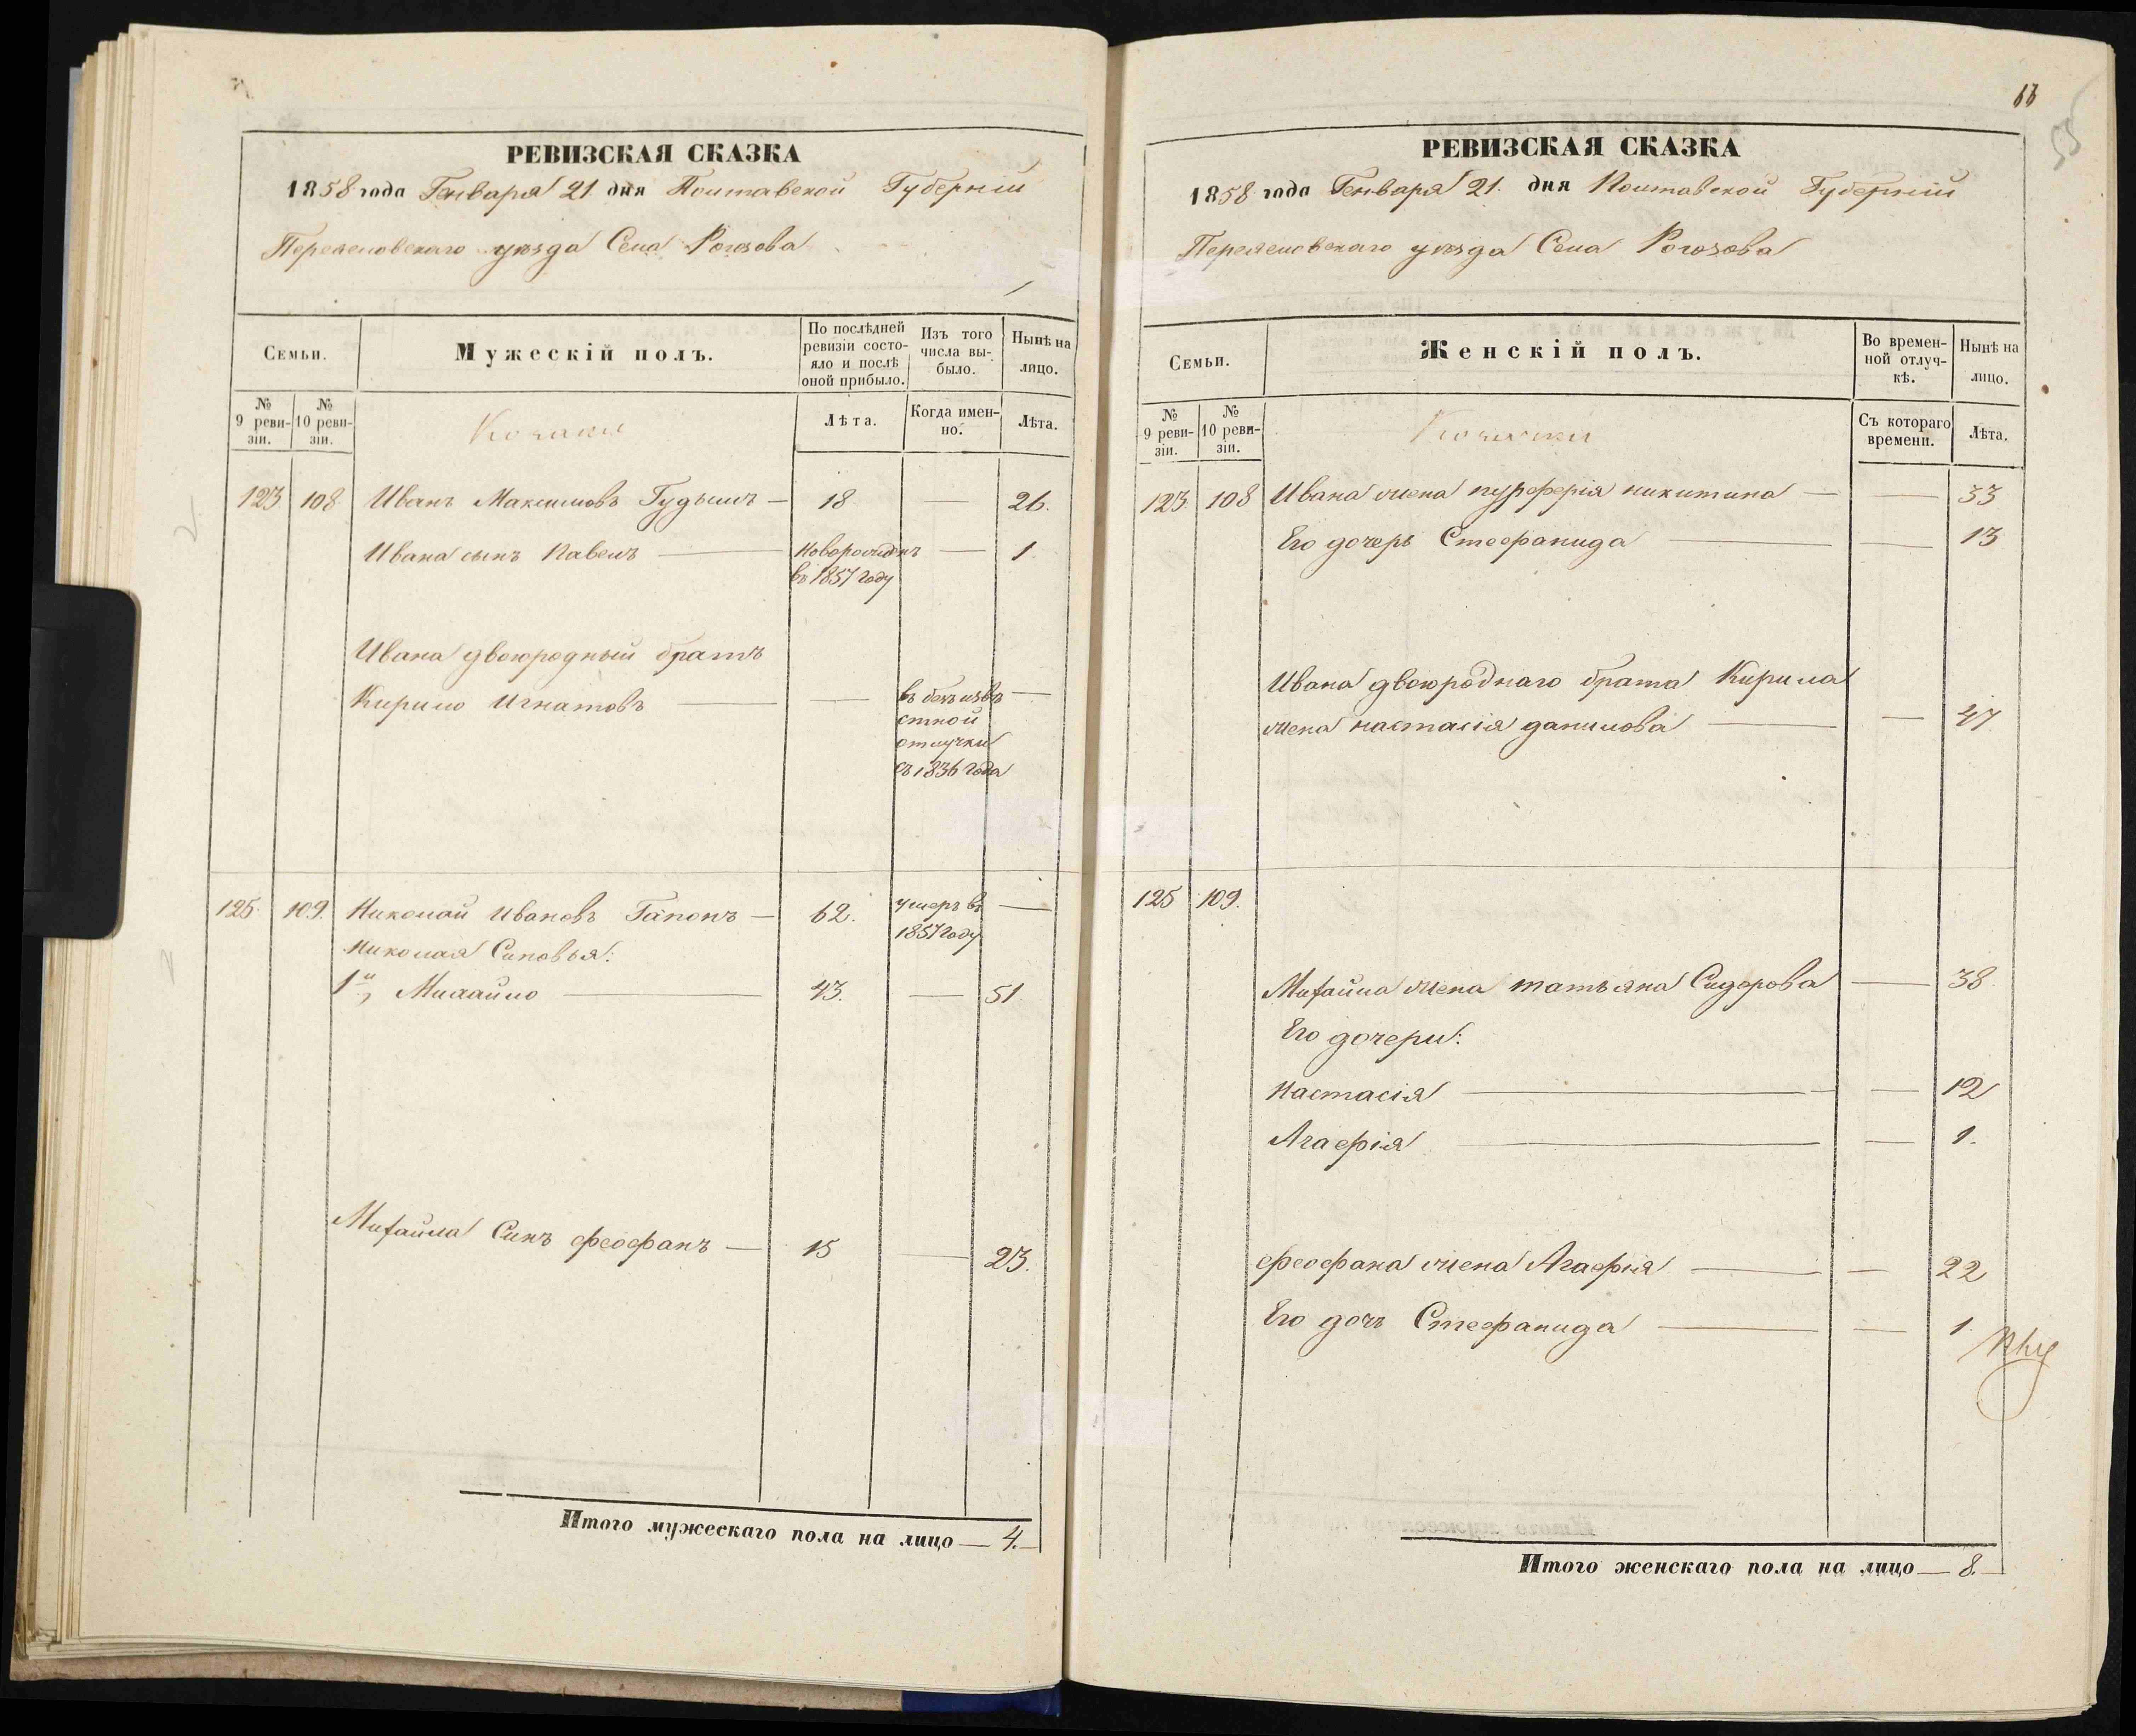 РЕВИЗСКАЯ СКАЗКА
1858 года Генваря 21 дня Полтавской Губерніи
Переяславскаго уѣзда Села Рогозова
Семьи.
Мужескій полъ.
По послѣдней ревизіи состояло и послѣ оной прибыло.
Изъ того числа выбыло.
Нынѣ на лицо.
№ 9 ревизіи.
№ 10 ревизіи.
Козаки
Лѣта.
Когда именно.
Лѣта.
123 108 Иванъ Максимовъ Гудымъ — 18. — 26.
Ивана сынъ Павелъ — новорожденъ — 1.
въ 1857 году
Ивана двоюродный братъ
Кирило Игнатовъ — — въ безызвѣ —
стной
отлучки
съ 1836 года
125. 109. Николай Ивановъ Гапонъ — 62. умеръ въ —
1857 году
Николая Синовья:
1й, Михайло — 43. — 51
Михайла Синъ Феофанъ — 15 — 23.
Итого мужескаго пола на лицо — 4. —
55
РЕВИЗСКАЯ СКАЗКА
1858 года Генваря 21. дня Полтавской Губерніи
Переяславскаго уѣзда Села Рогозова
Семьи.
Женскій полъ.
Во временной отлучкѣ.
Нынѣ на лицо.
№ 9 ревизіи.
№ 10 ревизіи.
Козачки
Съ котораго времени.
Лѣта.
123. 108 Ивана жена пурферія никитина — — 33
Его дочерь Стефанида — — 13
Ивана двоюроднаго брата Кирила
жена настасія данилова — — 47
125 109.
Михайла жена татьяна Сидорова — 38.
Его дочери:
настасія — — 12
Агафія — — 1.
Феофана жена Агафія — — 22
Его дочь Стефанида — — 1.
Итого женскаго пола на лицо — 8. —